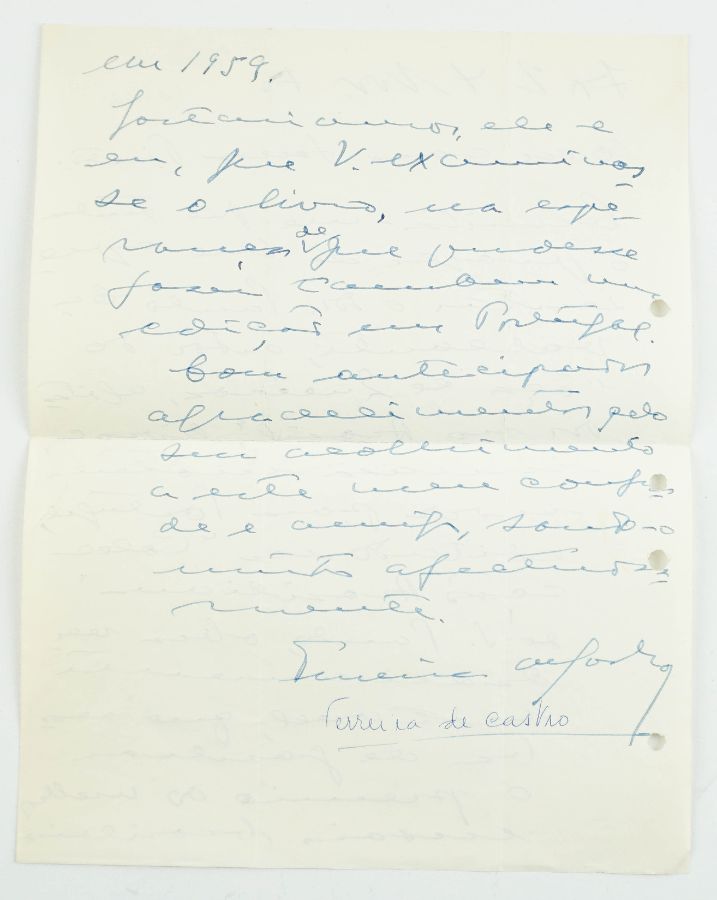 em 1959.
Gostariamos, ele e
eu, que V. examinas-
se o livro, na espe-
rança de que pudesse
fazer tambem uma
edição em Portugal.
Com antecipados
agradecimentos pelo
seu acolhimento
a este meu confra-
de e amigo, saudo-o
muito afectuosa-
mente.
Ferreira de Castro
Ferreira de Castro